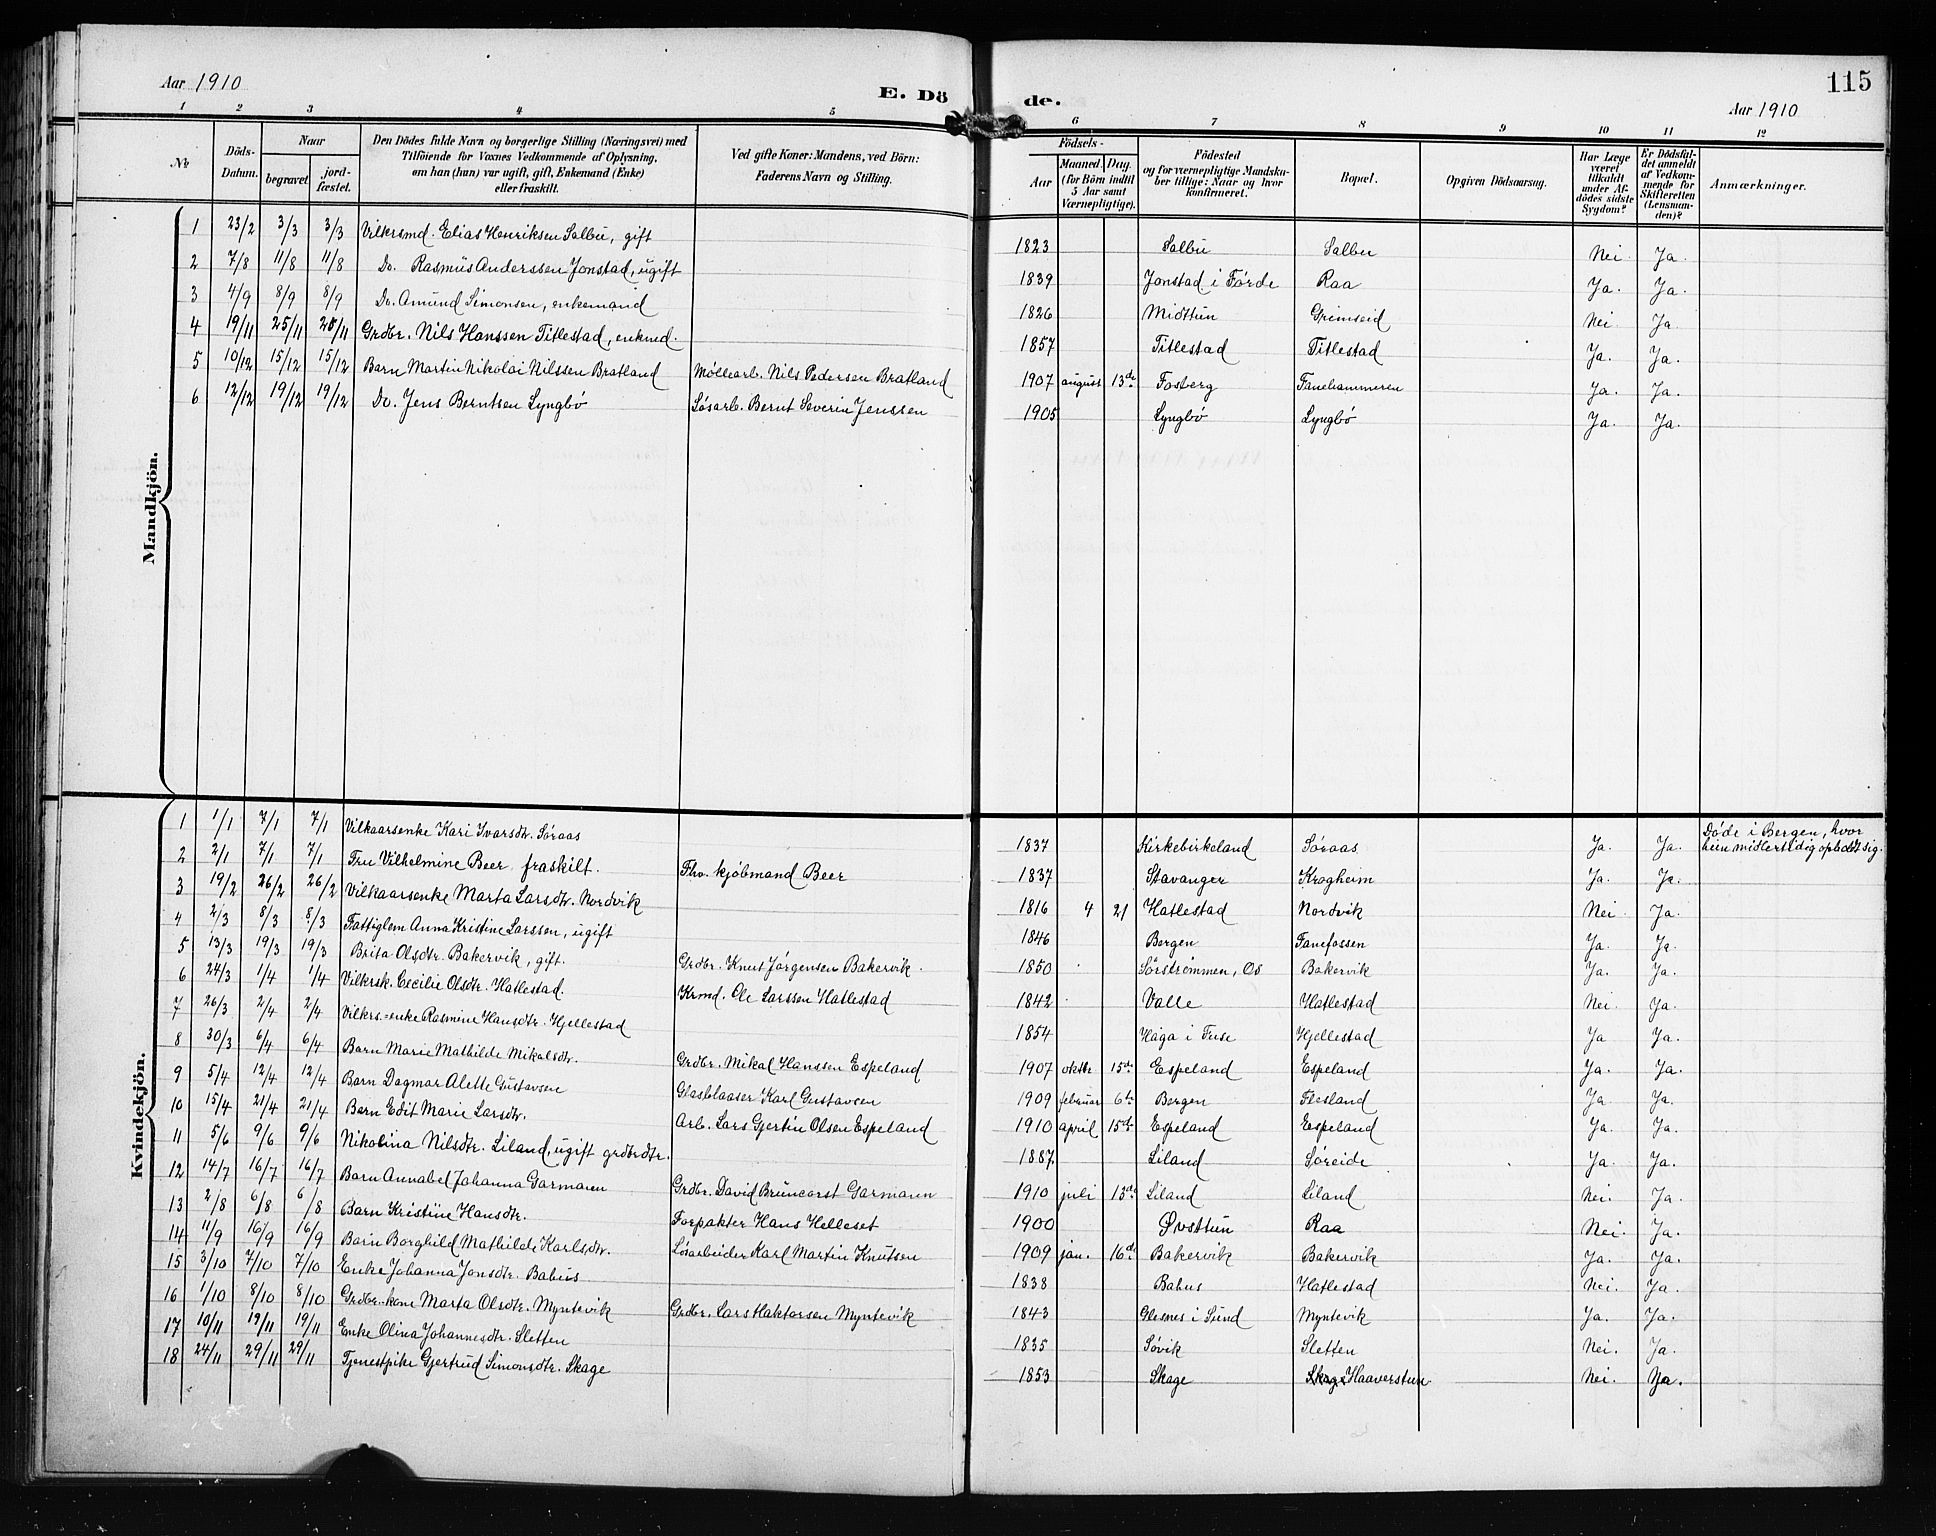 Aar 1910
E. Dö
de.
115
Aar 1910
1 2 3 4 5 6 7 8 9 10 11 12
No. | Döds-Datum. | Naar begravet | jordfæstet. | Den Dödes fulde Navn og borgerlige Stilling (Næringsvei) med Tilföiende for Voxnes Vedkommende af Oplysning, om han (hun) var ugift, gift, Enkemand (Enke) eller fraskilt. | Ved gifte Koner: Mandens, ved Börn: Faderens Navn og Stilling. | Födsels- Aar | Maaned. | Dag. (for Börn indtil 5 Aar samt Værnepligtige). | Födested og for værnepligtige Mandskaber tillige: Naar og hvor konfirmeret. | Bopæl. | Opgiven Dödsaarsag. | Har Læge været tilkaldt under Afdödes sidste Sygdom? | Er Dödsfaldet anmeldt af Vedkommende for Skifteretten (Lensmanden)? | Anmærkninger.
Mandkjön.
1 23/2 3/3 3/3 Vilkrsmd. Elias Henriksen Salbu, gift 1823 Salbu Salbu Nei Ja.
2 7/8 11/8 11/8 Do. Rasmus Anderssen Jonstad, ugift 1839 Jonstad i Førde Raa Ja. Ja.
3 4/9 8/9 8/9 Do. Amund Simonsen, enkemand 1826 Midttun Grimseid Nei Ja
4 19/11 25/11 25/11 Grdbr. Nils Hanssen Titlestad, enkmd. 1857 Titlestad Titlestad Ja. Ja.
5 10/12 15/12 15/12 Barn Martin Nikolai Nilssen Bratland Møllearb. Nils Pedersen Bratland 1907 august 13de Fosberg Fanehammeren Ja. Ja.
6 12/12 19/12 19/12 Do. Jens Berntsen Lyngbø Løsarb. Bernt Severin Jenssen 1905 Lyngbø Lyngbø Ja. Ja.
Kvindekjön.
1 1/1 7/1 7/1 Vilkaarsenke Kari Ivarsdtr. Søraas 1837 Kirkebirkeland Søraas Ja. Ja. Døde i Bergen, hvor hun midlertidig opholdt sig.
2 2/1 7/1 7/1 Fru Vilhelmine Beer fraskilt. Fhv. kjøbmand Beer 1837 Stavanger Krogheim Ja. Ja.
3 19/2 26/2 26/2 Vilkaarsenke Marta Larsdtr. Nordvik 1816 4 21 Hatlestad Nordvik Nei Ja.
4 2/3 8/3 8/3 Fattiglem Anna Kristine Larssen, ugift 1846 Bergen Fanefossen Ja. Ja.
5 13/3 19/3 19/3 Brita Olsdtr. Bakervik, gift. Grdbr. Knut Jørgensen Bakervik. 1850 Sørstrømmen, Os Bakervik Ja. Ja.
6 24/3 1/4 1/4 Vilkrsk. Cecilie Olsdtr. Hatlestad. Krmd. Ole Larssen Hatlestad 1842 Valle Hatlestad Nei Ja.
7 26/3 2/4 2/4 Vilkrs.=enke Rasmine Hansdtr. Hjellestad 1854 Haga i Fuse Hjellestad Ja Ja.
8 30/3 6/4 6/4 Barn Marie Mathilde Mikalsdtr. Grdbr. Mikal Hanssen Espeland 1907 oktbr. 15de Espeland Espeland Ja. Ja.
9 5/4 12/4 12/4 Barn Dagmar Alette Gustavsen Glasblaaser Karl Gustavsen 1909 februar 6te Bergen Flesland Ja. Ja.
10 15/4 21/4 21/4 Barn Edit Marie Larsdtr. Arb. Lars Gjertin Olsen Espeland 1910 april 15de Espeland Espeland Ja. Ja.
11 5/6 9/6 9/6 Nikolina Nilsdtr. Liland, ugift grdbrdtr. 1887. Liland Søreide Ja. Ja.
12 14/7 16/7 16/7 Barn Annabel Johanna Garmann Grdbr. David Bruncorst Garmann 1910 juli 13de Liland Liland Nei. Ja.
13 2/8 6/8 6/8 Barn Kristine Hansdtr. Forpakter Hans Helleset 1900 Øvsttun Raa Nei. Ja.
14 11/9 16/9 16/9 Barn Borghild Mathilde Karlsdtr. Løsarbeider Karl Martin Knutsen 1909 jan. 16de Bakervik Bakervik Ja. Ja.
15 3/10 7/10 7/10 Enke Johanna Jonsdtr. Babus 1838 Babus Hatlestad Nei. Ja.
16 1/10 8/10 8/10 Grdbr.-kone Marta Olsdtr. Myntevik Grdbr. Lars Haktorsen Myntevik 1843 Glesnes i Sund Myntevik Ja. Ja.
17 10/11 19/11 19/11 Enke Olina Johannesdtr. Sletten 1835 Søvik Sletten Nei. Ja.
18 24/11 29/11 29/11 Tjenestpike Gjertrud Simonsdtr. Skage 1853 Skage Skage Haaverstun. Nei. Ja.